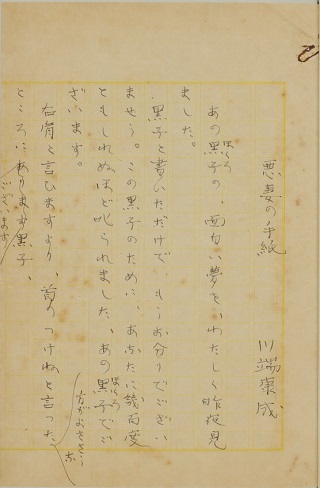 悪妻の手紙
川端康成
ほくろ
あの黒子の、面白い夢を、わたくし昨夜見
ました。
黒子と書いただけで、もうお分りでござい
ませう。この黒子のために、あなたに幾百度
ほくろ
ともしれぬほど叱られました、あの黒子でご
ざいます。
右肩と言ひますより、首のつけねと言つた
方がよささうな
ところにあります黒子、
ございます